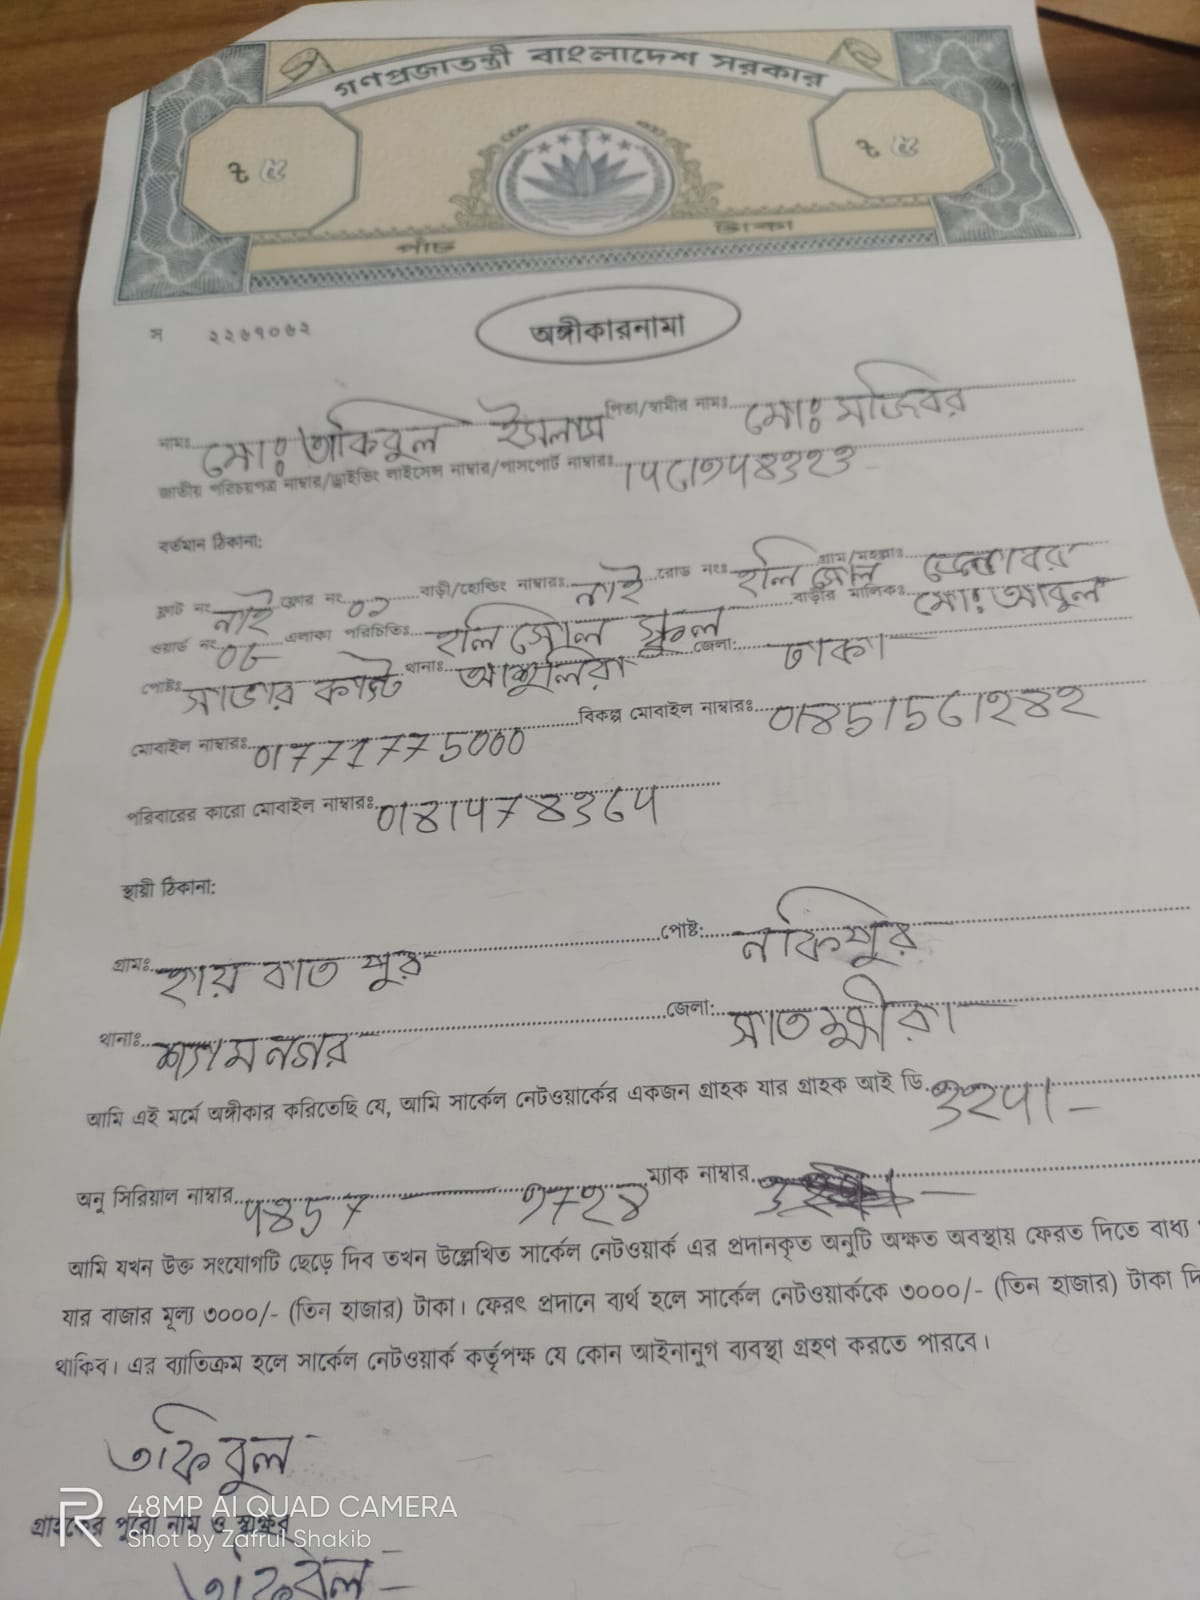 গণপ্রজাতন্ত্রী বাংলাদেশ সরকার
৳ ৫ ৳ ৫
পাঁচ টাকা
স ২২৬৭০৬২
অঙ্গীকারনামা
নামঃ মোঃ আকিবুল ইসলাম পিতা/স্বামীর নামঃ মোঃ মজিবর
জাতীয় পরিচয়পত্র নাম্বার/ড্রাইভিং লাইসেন্স নাম্বার/পাসপোর্ট নাম্বারঃ
বর্তমান ঠিকানা:
ফ্লাট নং নাই ফ্লোর নং ০২ বাড়ী/হোল্ডিং নাম্বারঃ নাই রোড নংঃ হলি সোল গ্রাম/মহল্লাঃ
ওয়ার্ড নং ০৮ এলাকা পরিচিতিঃ হলি সোল স্কুল বাড়ীর মালিকঃ মোঃ আবুল
পোষ্টঃ সাভার ক্যান্ট থানাঃ আশুলিয়া জেলা: ঢাকা
মোবাইল নাম্বারঃ 01771775000 বিকল্প মোবাইল নাম্বারঃ
পরিবারের কারো মোবাইল নাম্বারঃ
স্থায়ী ঠিকানা:
গ্রামঃ হায় বাত পুর পোষ্ট: নকিপুর
থানাঃ শ্যামনগর জেলা: সাতক্ষীরা
আমি এই মর্মে অঙ্গীকার করিতেছি যে, আমি সার্কেল নেটওয়ার্কের একজন গ্রাহক যার গ্রাহক আই ডি.
অনু সিরিয়াল নাম্বার ম্যাক নাম্বার
আমি যখন উক্ত সংযোগটি ছেড়ে দিব তখন উল্লেখিত সার্কেল নেটওয়ার্ক এর প্রদানকৃত অনুটি অক্ষত অবস্থায় ফেরত দিতে বাধ্য
যার বাজার মূল্য ৩০০০/- (তিন হাজার) টাকা। ফেরৎ প্রদানে ব্যর্থ হলে সার্কেল নেটওয়ার্ককে ৩০০০/- (তিন হাজার) টাকা দি
থাকিব। এর ব্যতিক্রম হলে সার্কেল নেটওয়ার্ক কর্তৃপক্ষ যে কোন আইনানুগ ব্যবস্থা গ্রহণ করতে পারবে।
আকিবুল
গ্রাহকের পুরো নাম ও স্বাক্ষর
আকিবুল
R 48MP AI QUAD CAMERA
Shot by Zafrul Shakib